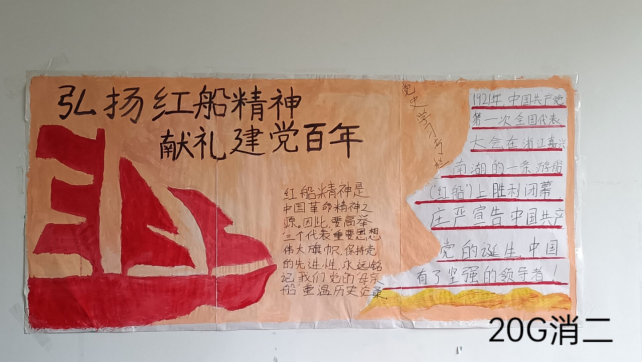 弘扬红船精神
献礼建党百年
红船精神是
中国革命精神之
源。因此,要高举
三个代表重要思想
伟大旗帜,保持党
的先进性,永远铭
记我们党的母亲
船 重温历史
党史学习
1921年,中国共产党
第一次全国代表
大会在浙江嘉兴
南湖的一条游船
(红船)上胜利闭幕
庄严宣告中国共产
党的诞生,中国
有了坚强的领导者!
20G消二